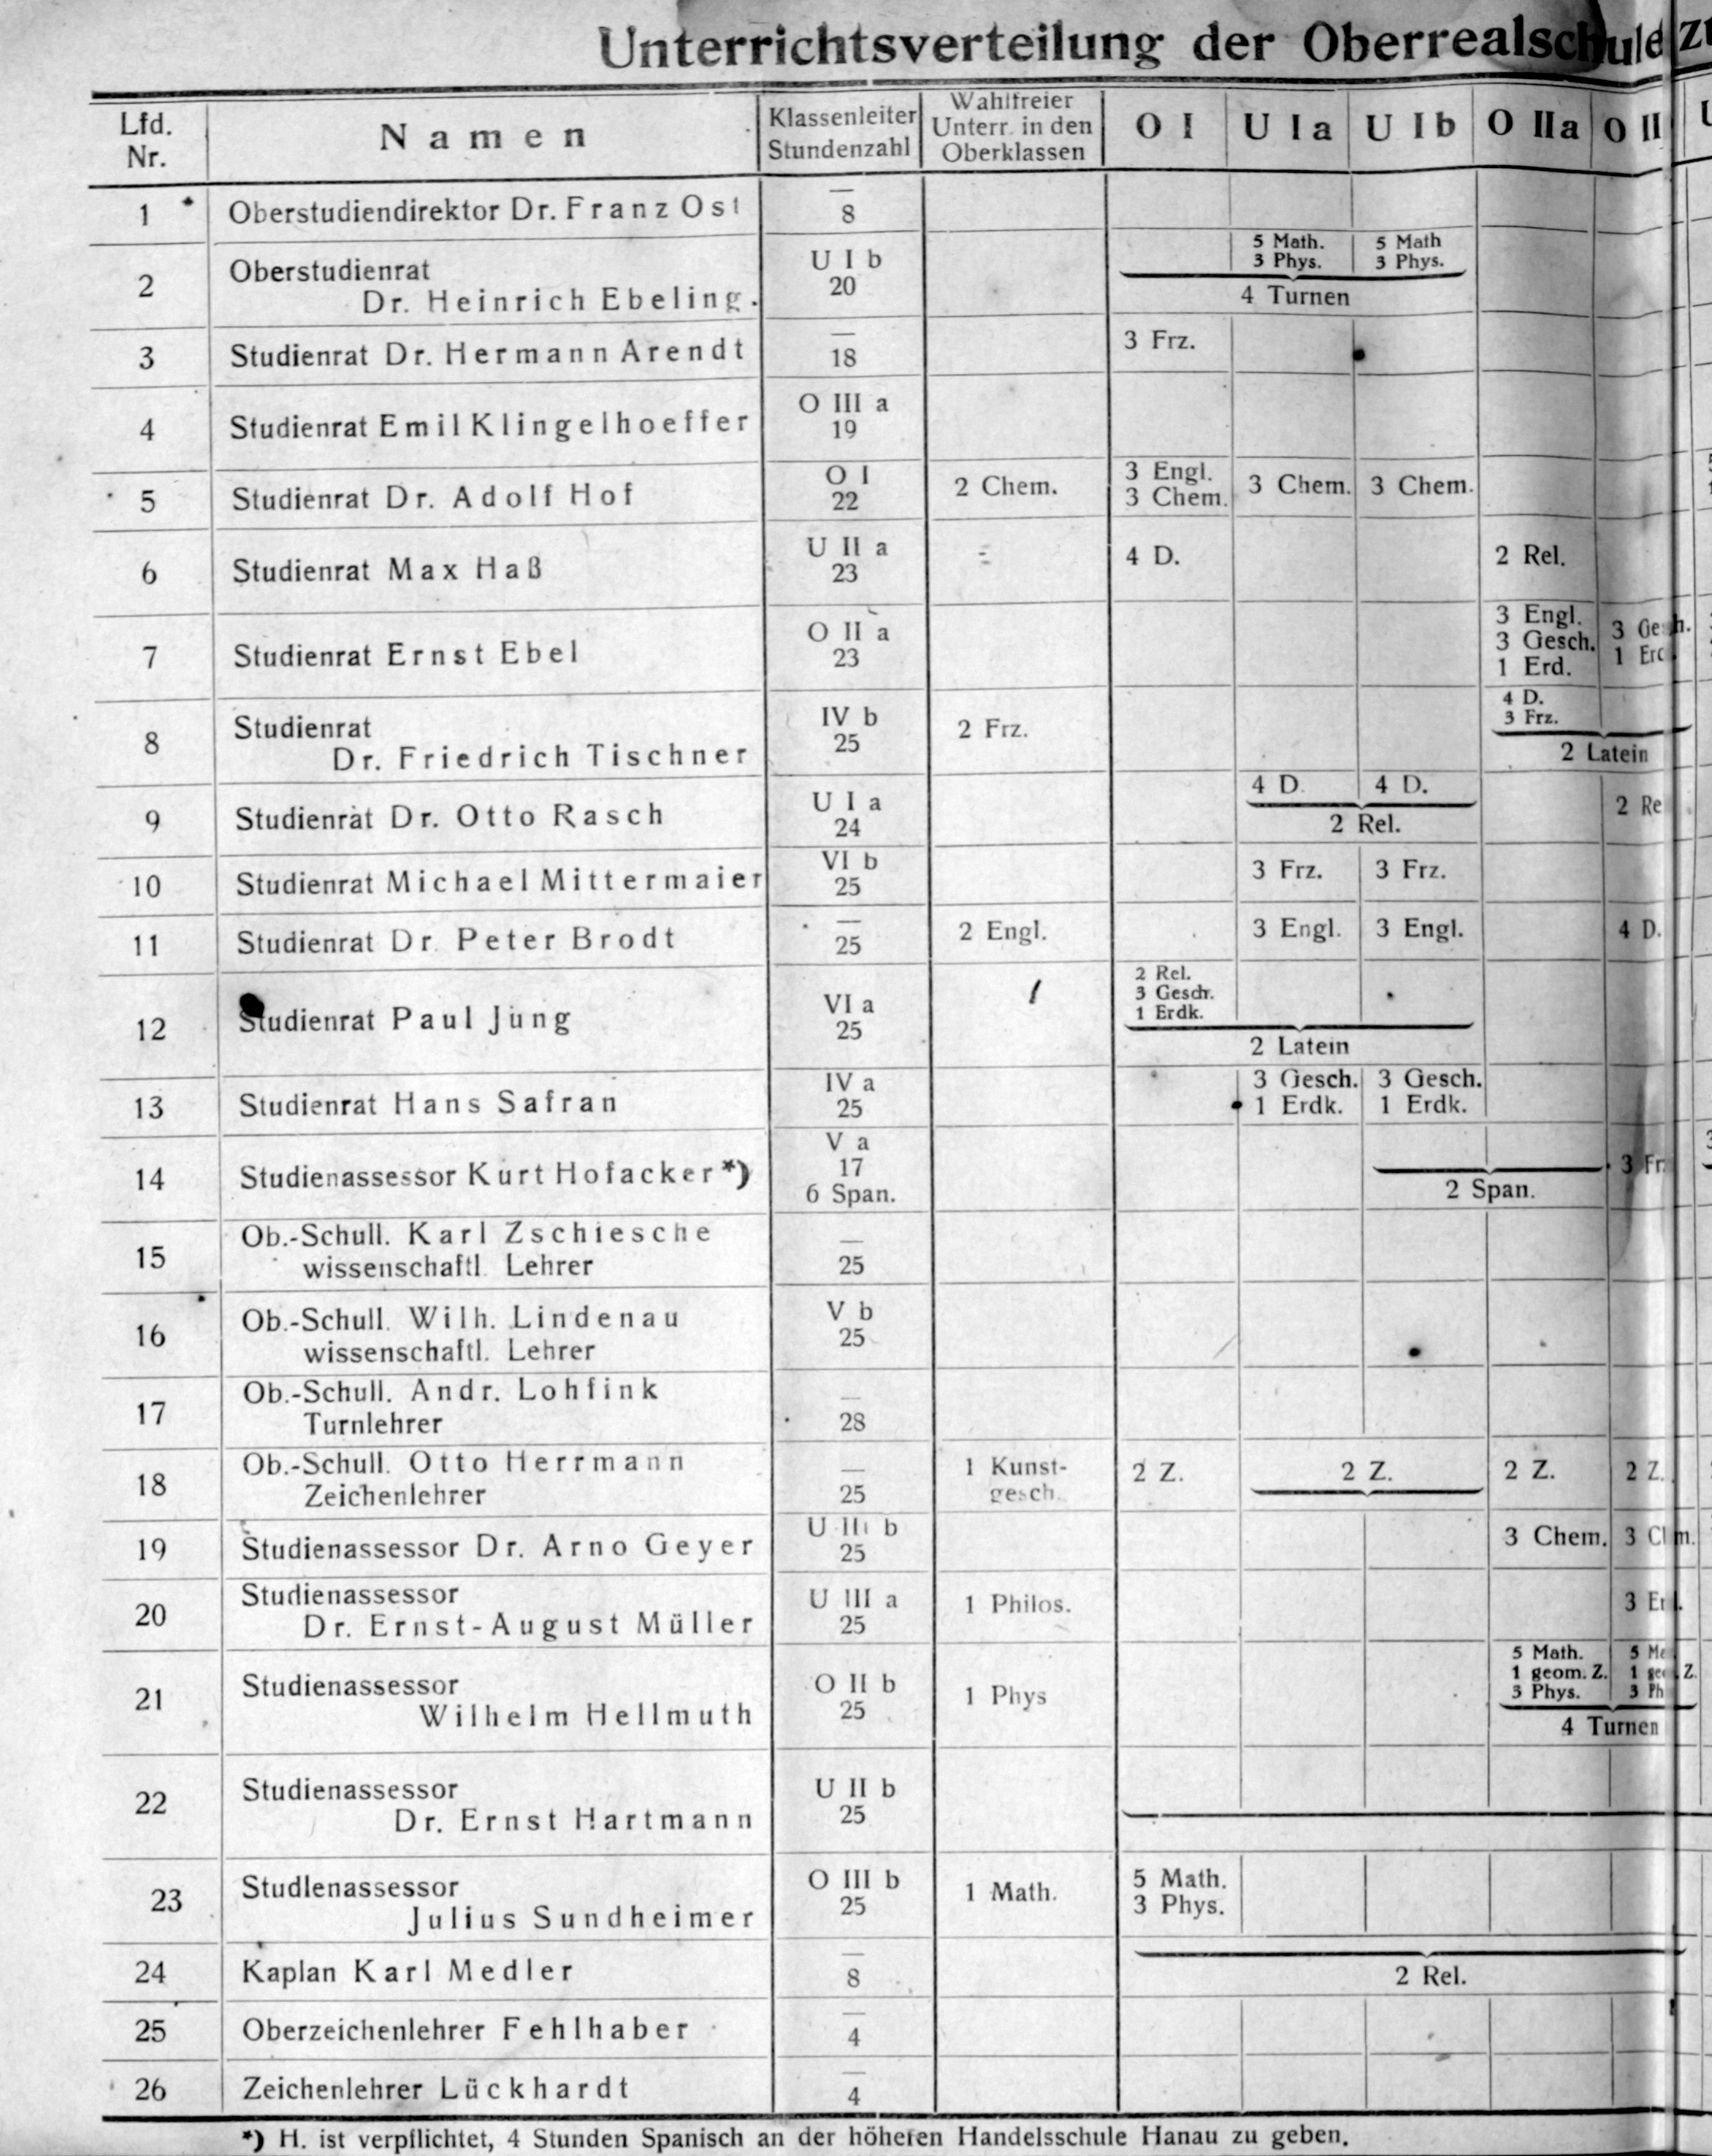 Unterrichtsverteilung der Oberrealschule
Lfd. Nr.
Namen
Klassenleiter Stundenzahl
Wahlfreier Unterr. in den Oberklassen
O I
U I a
U I b
O II a
O II
1 Oberstudiendirektor Dr. Franz Ost — 8
2 Oberstudienrat Dr. Heinrich Ebeling. U I b 20 5 Math. 3 Phys. 5 Math 3 Phys. 4 Turnen
3 Studienrat Dr. Hermann Arendt — 18 3 Frz.
4 Studienrat Emil Klingelhoeffer O III a 19
5 Studienrat Dr. Adolf Hof O I 22 2 Chem. 3 Engl. 3 Chem. 3 Chem. 3 Chem.
6 Studienrat Max Haß U II a 23 4 D. 2 Rel.
7 Studienrat Ernst Ebel O II a 23 3 Engl. 3 Gesch. 1 Erd. 3 1
8 Studienrat Dr. Friedrich Tischner IV b 25 2 Frz. 4 D. 3 Frz. 2 Latein
9 Studienrat Dr. Otto Rasch U I a 24 4 D. 4 D. 2 Rel. 2 Re
10 Studienrat Michael Mittermaier VI b 25 3 Frz. 3 Frz.
11 Studienrat Dr. Peter Brodt — 25 2 Engl. 3 Engl. 3 Engl. 4 D.
12 Studienrat Paul Jung VI a 25 2 Rel. 3 Gesch. 1 Erdk. 2 Latein
13 Studienrat Hans Safran IV a 25 3 Gesch. 1 Erdk. 3 Gesch. 1 Erdk.
14 Studienassessor Kurt Hofacker *) V a 17 6 Span. 2 Span. 3 Fr
15 Ob.-Schull. Karl Zschiesche wissenschaftl. Lehrer — 25
16 Ob.-Schull. Wilh. Lindenau wissenschaftl. Lehrer V b 25
17 Ob.-Schull. Andr. Lohfink Turnlehrer — 28
18 Ob.-Schull. Otto Herrmann Zeichenlehrer — 25 1 Kunst- gesch. 2 Z. 2 Z. 2 Z. 2 Z.
19 Studienassessor Dr. Arno Geyer U III b 25 3 Chem. 3
20 Studienassessor Dr. Ernst-August Müller U III a 25 1 Philos. 3
21 Studienassessor Wilhelm Hellmuth O II b 25 1 Phys 5 Math. 1 geom. Z. 3 Phys. 5 1 Z. 3 4 Turnen
22 Studienassessor Dr. Ernst Hartmann U II b 25
23 Studlenassessor Julius Sundheimer O III b 25 1 Math. 5 Math. 3 Phys.
24 Kaplan Karl Medler — 8 2 Rel.
25 Oberzeichenlehrer Fehlhaber — 4
26 Zeichenlehrer Lückhardt — 4
*) H. ist verpflichtet, 4 Stunden Spanisch an der höheren Handelsschule Hanau zu geben.